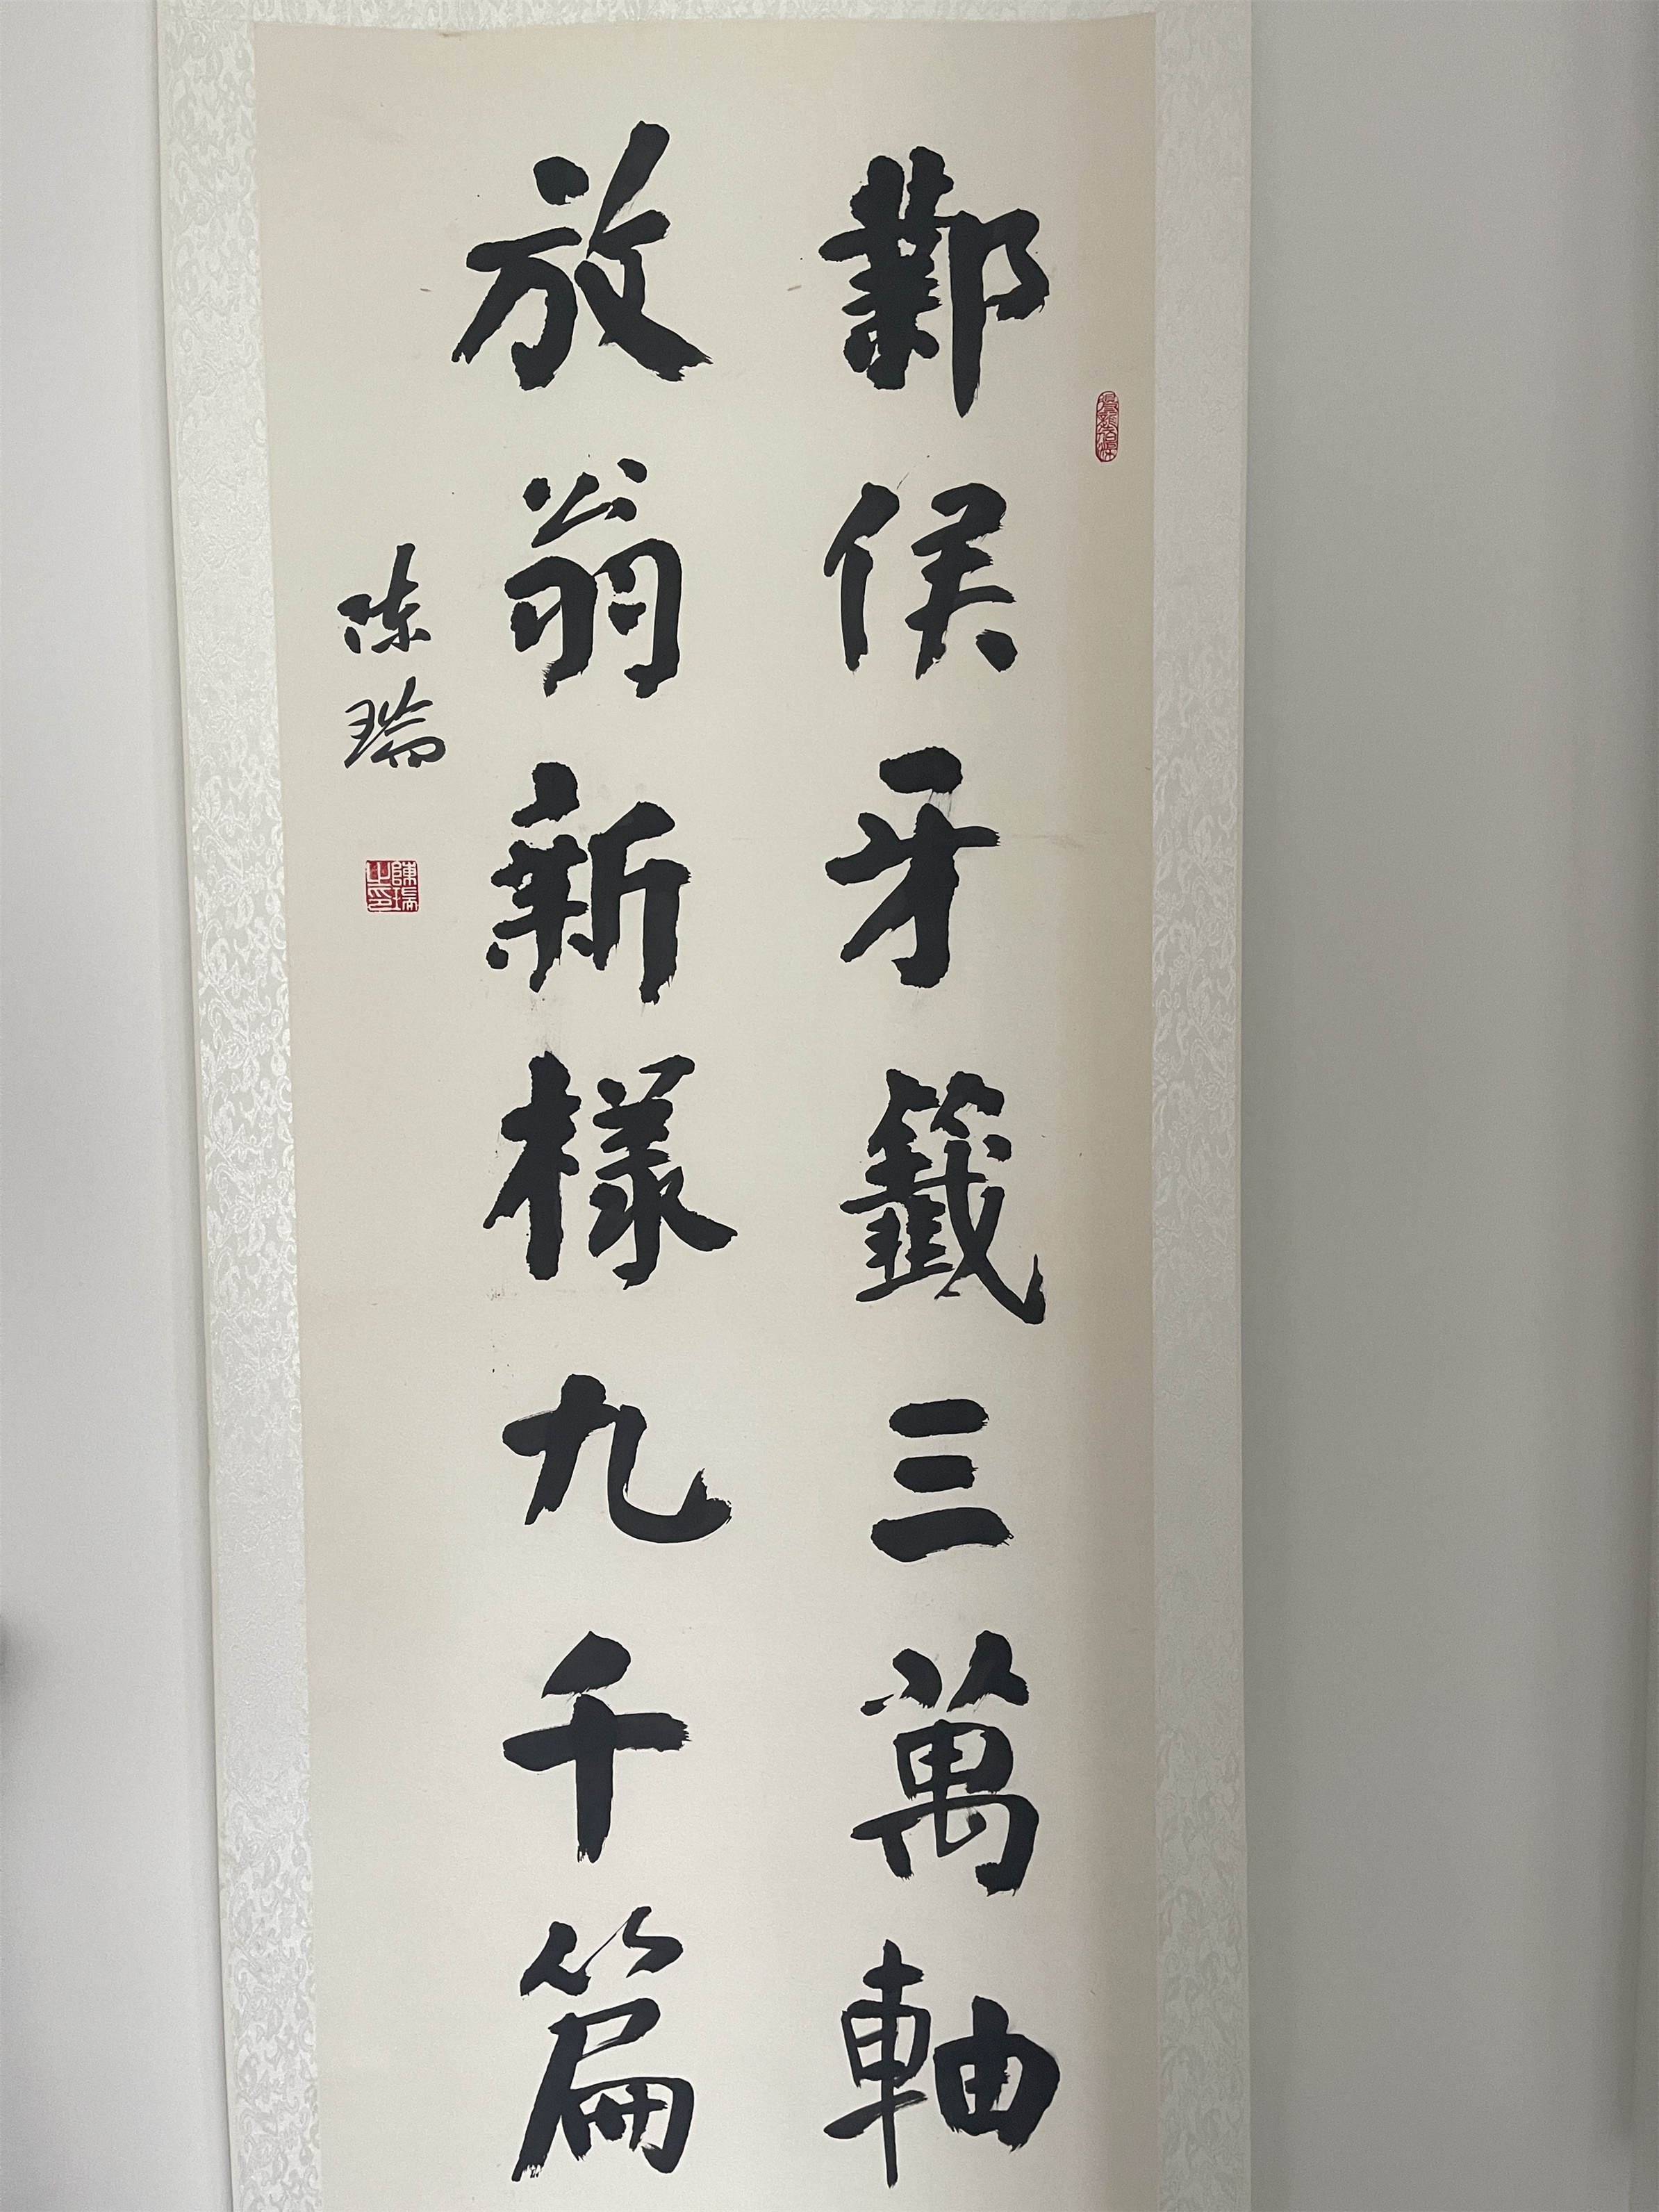 鄴侯牙籤三萬軸
放翁新樣九千篇
陳瑞
陳瑞之印